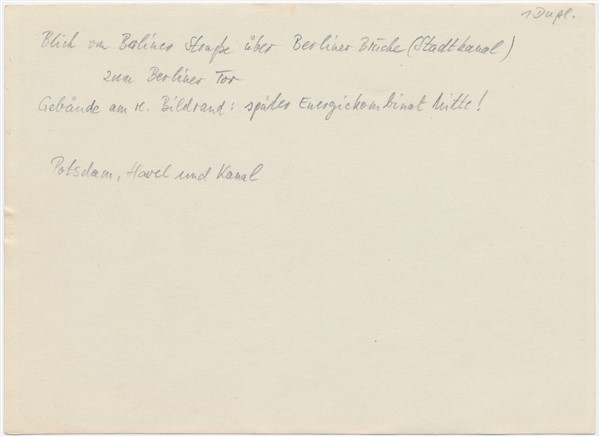 1 Dupl.
Blick von Berliner Straße über Berliner Brücke (Stadtkanal)
zum Berliner Tor
Gebäude am re. Bildrand: später Energiekombinat Mitte!
Potsdam, Havel und Kanal